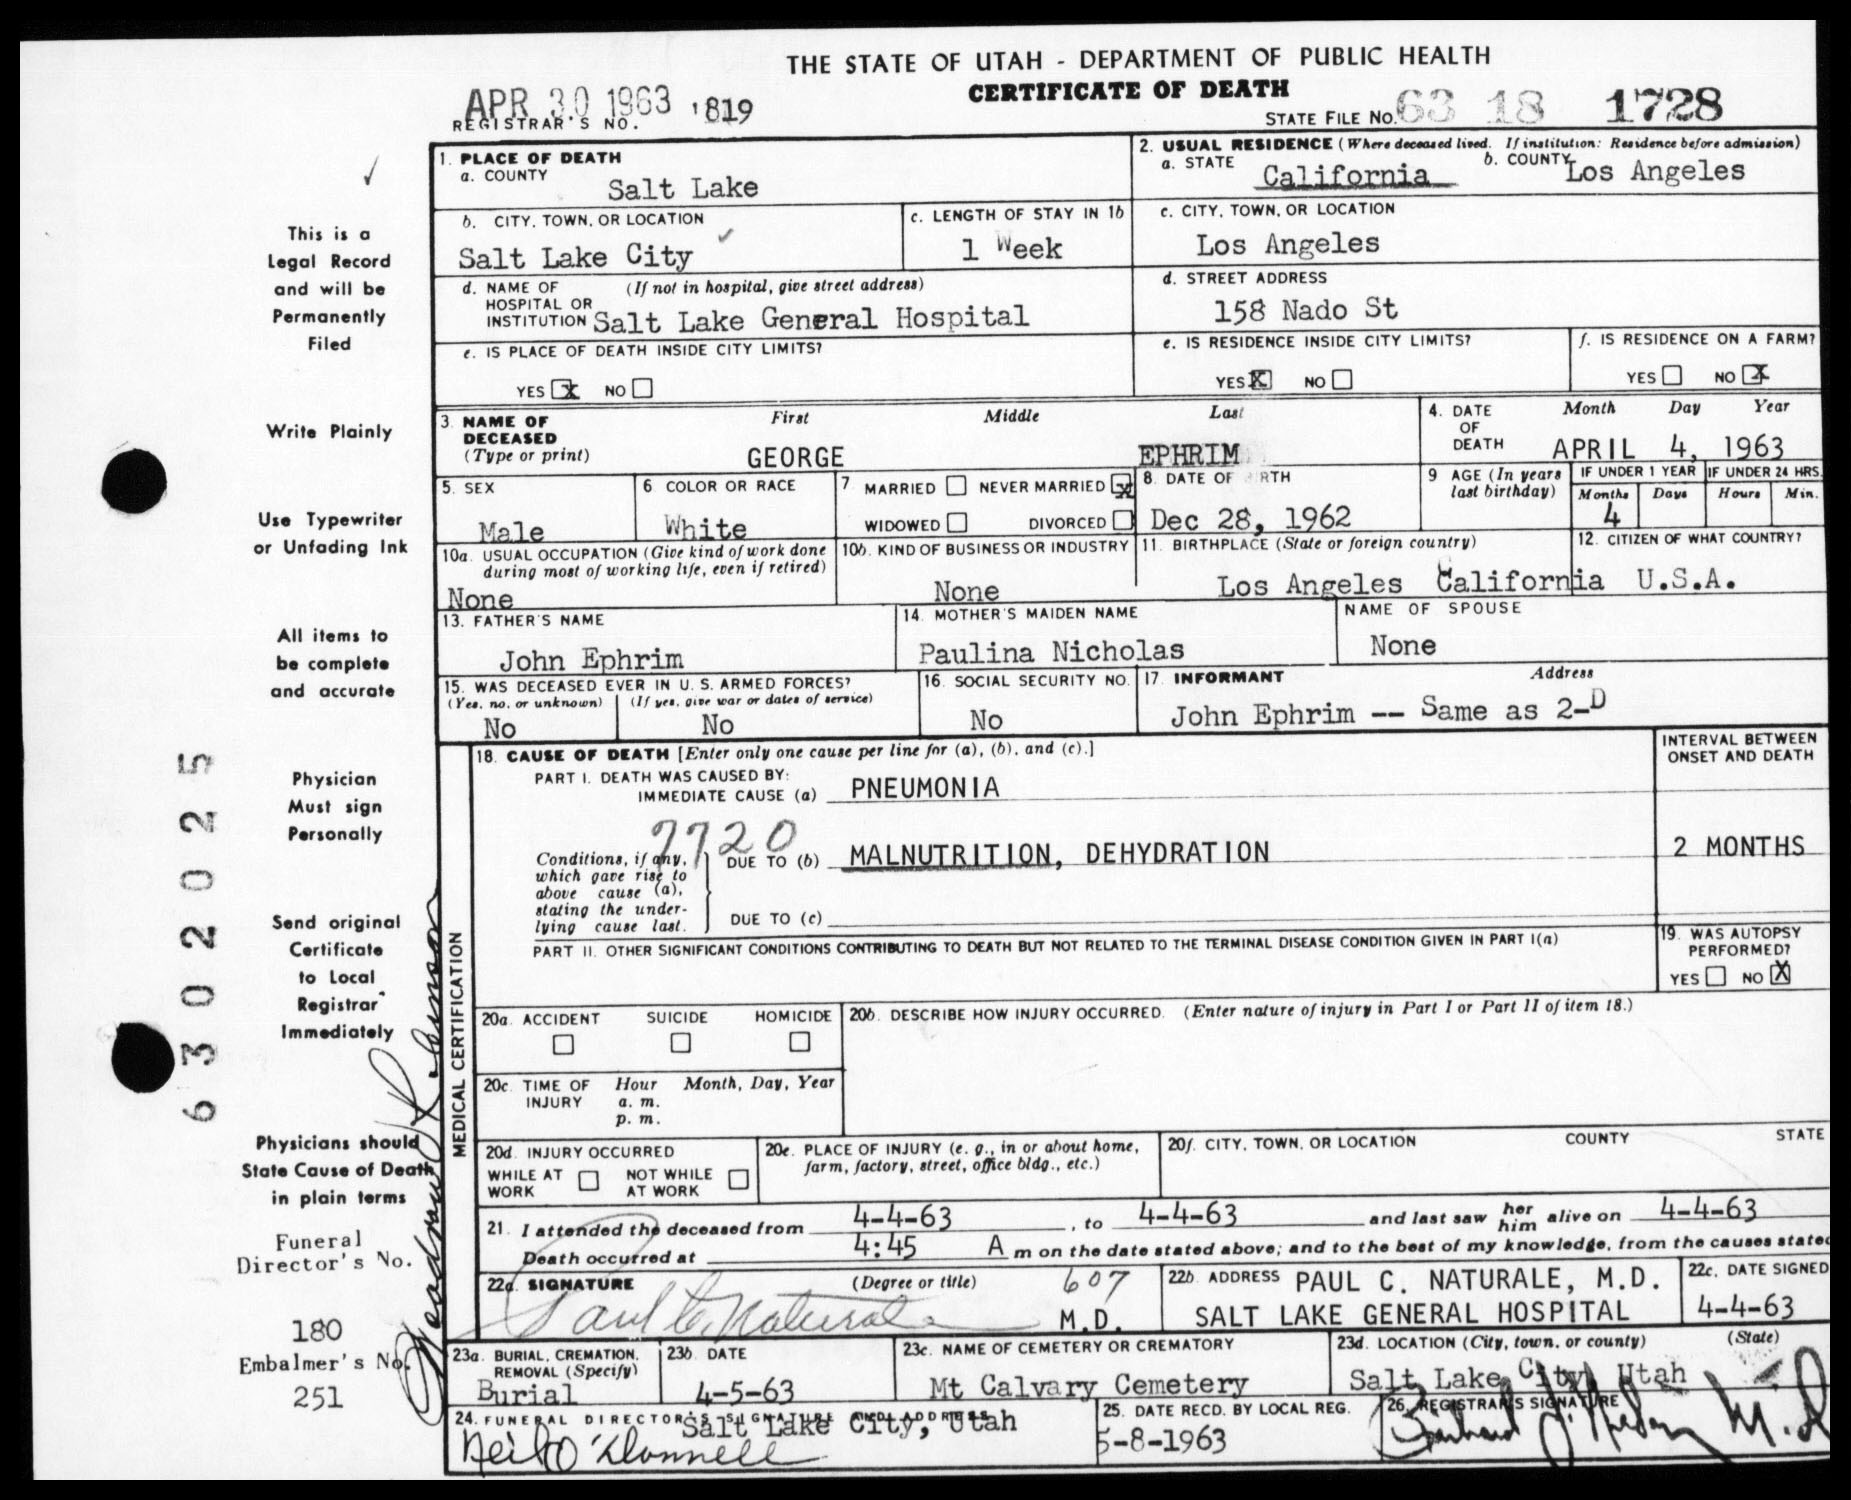 THE STATE OF UTAH - DEPARTMENT OF PUBLIC HEALTH
CERTIFICATE OF DEATH
APR 30 1963 1819
REGISTRAR'S NO.
STATE FILE No. 63 18 1728
This is a
Legal Record
and will be
Permanently
Filed
Write Plainly
Use Typewriter
or Unfading Ink
All items to
be complete
and accurate
Physician
Must sign
Personally
Send original
Certificate
to Local
Registrar
Immediately
Physicians should
State Cause of Death
in plain terms
Funeral
Director's No.
180
Embalmer's No.
251
63 02025
1. PLACE OF DEATH
a. COUNTY
Salt Lake
2. USUAL RESIDENCE (Where deceased lived. If institution: Residence before admission)
a. STATE California b. COUNTY Los Angeles
b. CITY, TOWN, OR LOCATION
Salt Lake City
c. LENGTH OF STAY IN 1b
1 Week
c. CITY, TOWN, OR LOCATION
Los Angeles
d. NAME OF (If not in hospital, give street address)
HOSPITAL OR
INSTITUTION Salt Lake General Hospital
d. STREET ADDRESS
158 Nado St
e. IS PLACE OF DEATH INSIDE CITY LIMITS?
YES X NO
e. IS RESIDENCE INSIDE CITY LIMITS?
YES X NO
f. IS RESIDENCE ON A FARM?
YES NO X
3. NAME OF DECEASED (Type or print)
First Middle Last
GEORGE EPHRIM
4. DATE OF DEATH Month Day Year
APRIL 4, 1963
5. SEX
Male
6 COLOR OR RACE
White
7 MARRIED NEVER MARRIED X
WIDOWED DIVORCED
8. DATE OF BIRTH
Dec 28, 1962
9 AGE (In years last birthday)
IF UNDER 1 YEAR IF UNDER 24 HRS.
Months Days Hours Min.
4
10a. USUAL OCCUPATION (Give kind of work done
during most of working life, even if retired)
None
10b. KIND OF BUSINESS OR INDUSTRY
None
11. BIRTHPLACE (State or foreign country)
Los Angeles California
12. CITIZEN OF WHAT COUNTRY?
U.S.A.
13. FATHER'S NAME
John Ephrim
14. MOTHER'S MAIDEN NAME
Paulina Nicholas
NAME OF SPOUSE
None
15. WAS DECEASED EVER IN U. S. ARMED FORCES?
(Yes, no, or unknown) (If yes, give war or dates of service)
No No
16. SOCIAL SECURITY NO.
No
17. INFORMANT Address
John Ephrim -- Same as 2-D
MEDICAL CERTIFICATION
18. CAUSE OF DEATH [Enter only one cause per line for (a), (b), and (c).]
INTERVAL BETWEEN
ONSET AND DEATH
PART I. DEATH WAS CAUSED BY:
IMMEDIATE CAUSE (a) PNEUMONIA
7720
Conditions, if any,
which gave rise to
above cause (a),
stating the under-
lying cause last.
DUE TO (b) MALNUTRITION, DEHYDRATION
2 MONTHS
DUE TO (c)
PART II. OTHER SIGNIFICANT CONDITIONS CONTRIBUTING TO DEATH BUT NOT RELATED TO THE TERMINAL DISEASE CONDITION GIVEN IN PART I(a)
19. WAS AUTOPSY
PERFORMED?
YES NO X
20a. ACCIDENT SUICIDE HOMICIDE
20b. DESCRIBE HOW INJURY OCCURRED. (Enter nature of injury in Part I or Part II of item 18.)
20c. TIME OF INJURY Hour Month, Day, Year
a. m.
p. m.
20d. INJURY OCCURRED
WHILE AT WORK NOT WHILE AT WORK
20e. PLACE OF INJURY (e. g., in or about home,
farm, factory, street, office bldg., etc.)
20f. CITY, TOWN, OR LOCATION COUNTY STATE
21. I attended the deceased from 4-4-63, to 4-4-63 and last saw her him alive on 4-4-63
Death occurred at 4:45 A m on the date stated above; and to the best of my knowledge, from the causes stated
22a. SIGNATURE (Degree or title) 607
Paul C. Naturale M.D.
22b. ADDRESS PAUL C. NATURALE, M.D.
SALT LAKE GENERAL HOSPITAL
22c. DATE SIGNED
4-4-63
23a. BURIAL, CREMATION,
REMOVAL (Specify)
Burial
23b. DATE
4-5-63
23c. NAME OF CEMETERY OR CREMATORY
Mt Calvary Cemetery
23d. LOCATION (City, town, or county) (State)
Salt Lake City Utah
24. FUNERAL DIRECTOR'S SIGNATURE AND ADDRESS
Salt Lake City, Utah
Neil O'Donnell
25. DATE RECD. BY LOCAL REG.
5-8-1963
26. REGISTRAR'S SIGNATURE
M.D